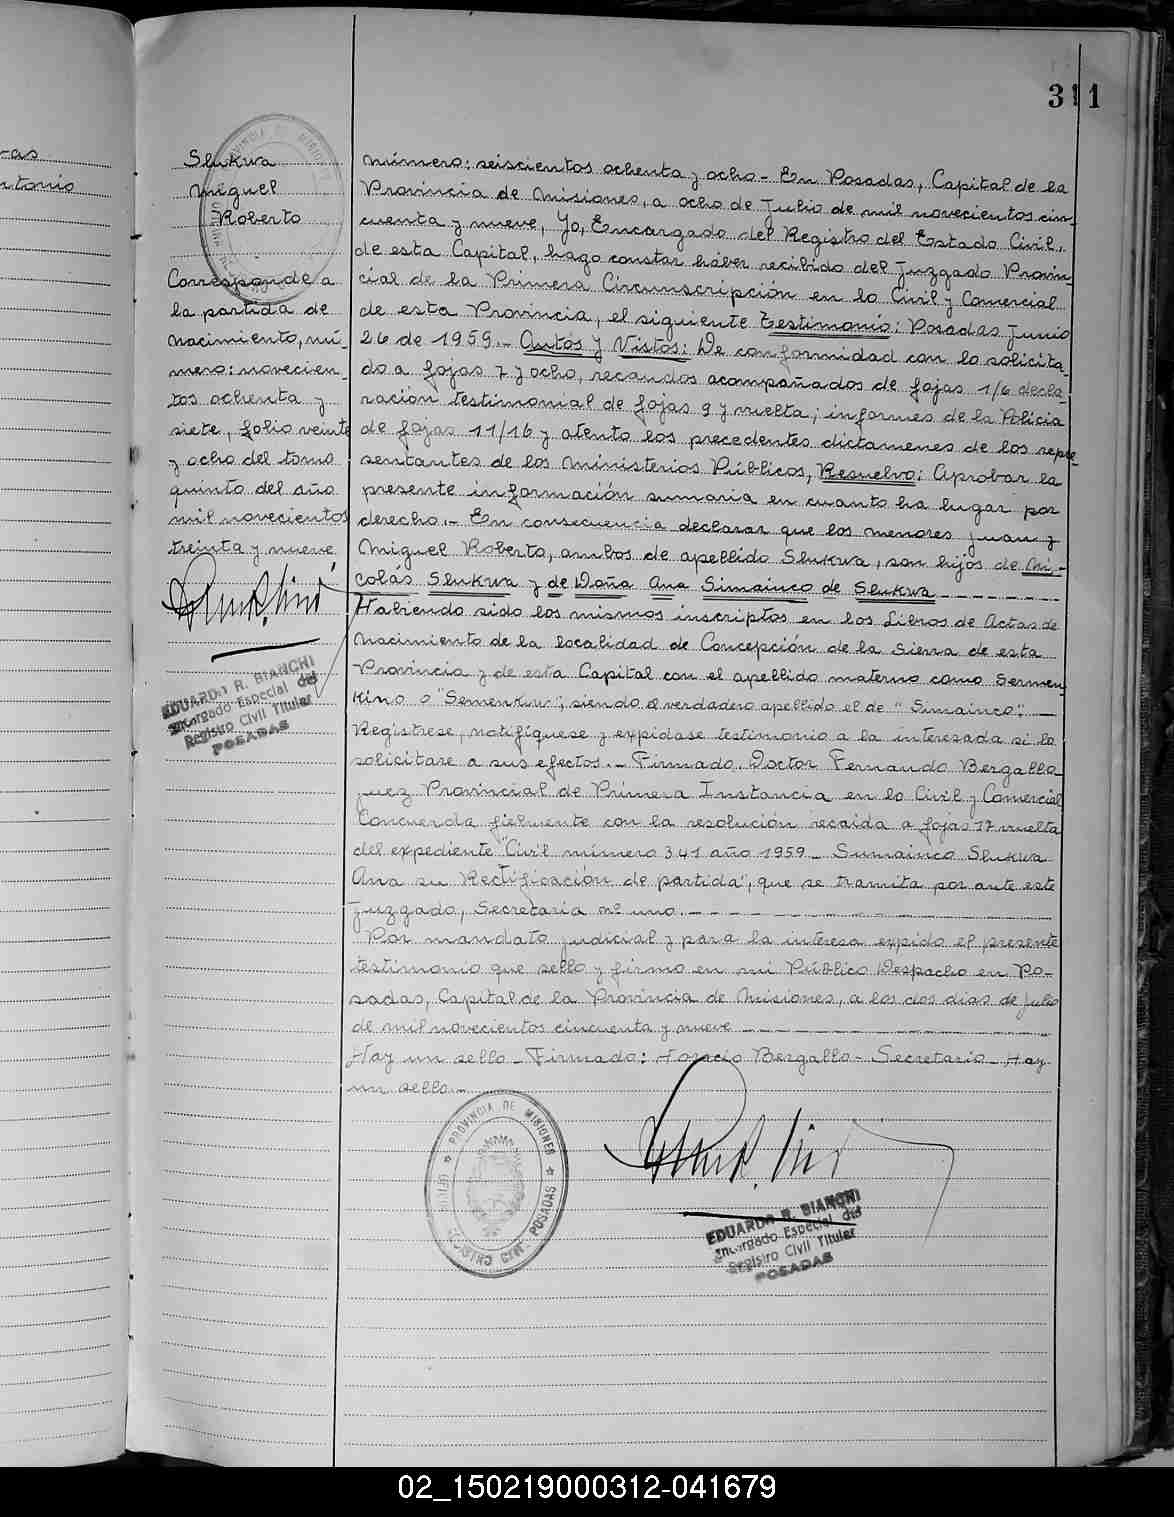 311
-as
ntonio
Slukwa
Miguel
Roberto
Corresponde a
la partida de
nacimiento, nú-
mero: novecien-
tos ochenta y
siete, folio veinte
y ocho del tomo
quinto del año
mil novecientos
treinta y nueve.
EDUARDO R. BIANCHI
Encargado Especial del
Registro Civil Titular
POSADAS
Número: seiscientos ochenta y ocho - En Posadas, Capital de la
Provincia de Misiones, a ocho de Julio de mil novecientos cin-
cuenta y nueve, Yo, Encargado del Registro del Estado Civil,
de esta Capital, hago constar háber recibido del Juzgado Provin-
cial de la Primera Circunscripción en lo Civil y Comercial
de esta Provincia, el siguiente Testimonio: Posadas Junio
26 de 1959.- Autos y Vistos: De conformidad con lo solicita-
do a fojas 7 y ocho, recaudos acompañados de fojas 1/6 decla-
ración testimonial de fojas 9 y vuelta; informes de la Policia
de fojas 11/16 y atento los precedentes dictamenes de los repre-
sentantes de los Ministerios Públicos, Resuelvo: Aprobar la
presente información sumaria en cuanto ha lugar por
derecho.- En consecuencia declarar que los menores Juan y
Miguel Roberto, ambos de apellido Slukwa, son hijos de Ni-
colás Slukwa y de Doña Ana Simainco de Slukwa
Habiendo sido los mismos inscriptos en los Libros de Actas de
Nacimiento de la localidad de Concepción de la Sierra de esta
Provincia y de esta Capital con el apellido materno como Sermen-
kino o "Semenkiu"; siendo el verdadero apellido el de "Simainco".-
Registrese, notifíquese y expidase testimonio a la interesada si lo
solicitare a sus efectos.- Firmado. Doctor Fernando Bergallo
Juez Provincial de Primera Instancia en lo Civil y Comercial
Concuerda fielmente con la resolución recaida a fojas 17 vuelta
del expediente "Civil número 341 año 1959 - Sumainco Slukwa
Ana su Rectificación de partida", que se tramita por ante este
Juzgado, Secretaria nº uno.-
Por mandato judicial y para la interesa expido el presente
testimonio que sello y firmo en mi Público Despacho en Po-
sadas, Capital de la Provincia de Misiones, a los dos dias de Julio
de mil novecientos cincuenta y nueve
Hay un sello - Firmado: Horacio Bergallo - Secretario - Hay
un sello.-
PROVINCIA DE MISIONES
REGISTRO CIVIL POSADAS
EDUARDO R. BIANCHI
Encargado Especial del
Registro Civil Titular
POSADAS
02_150219000312-041679